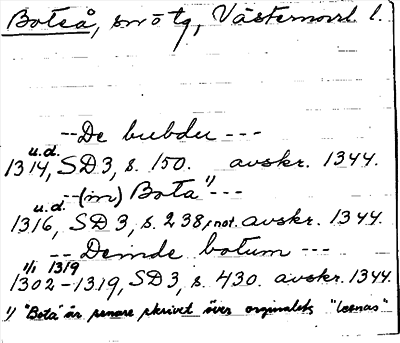 Boteå, sn ö tg, Västernorrl l.
-- De bubdu ---
u.d.
1314, SD 3, s. 150. avskr. 1344.
-- (im) Bota 1) ---
u.d.
1316, SD 3, s. 238, not. avskr. 1344.
-- Deinde botum ---
1/1 1319
1302-1319, SD 3, s. 430. avskr. 1344.
1) "Bota" är senare skrivet över orginalets